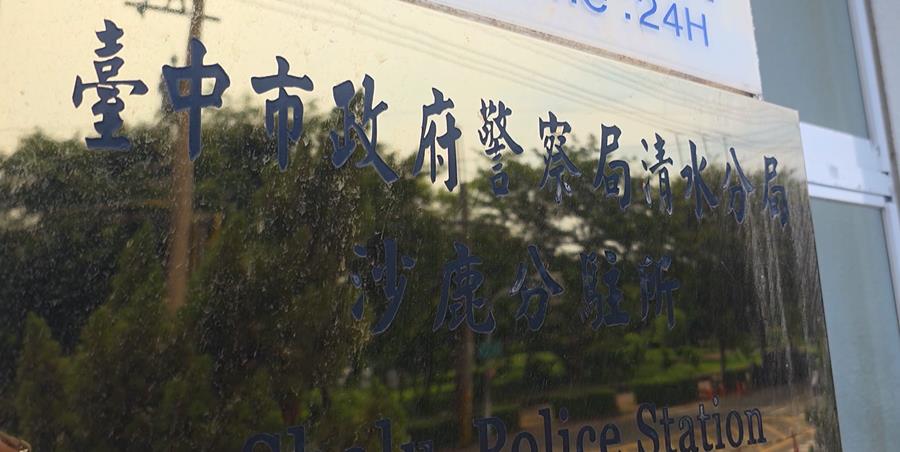 :24H
臺中市政府警察局清水分局
沙鹿分駐所
Police Station